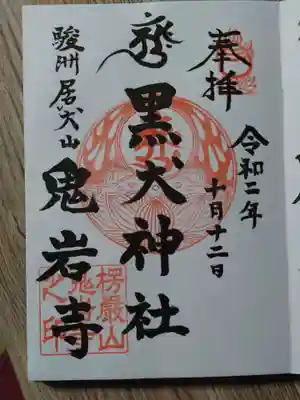 奉拝
令和二年
十月十二日
黒犬神社
駿州
鬼岩寺
楞厳山
鬼岩寺
之印